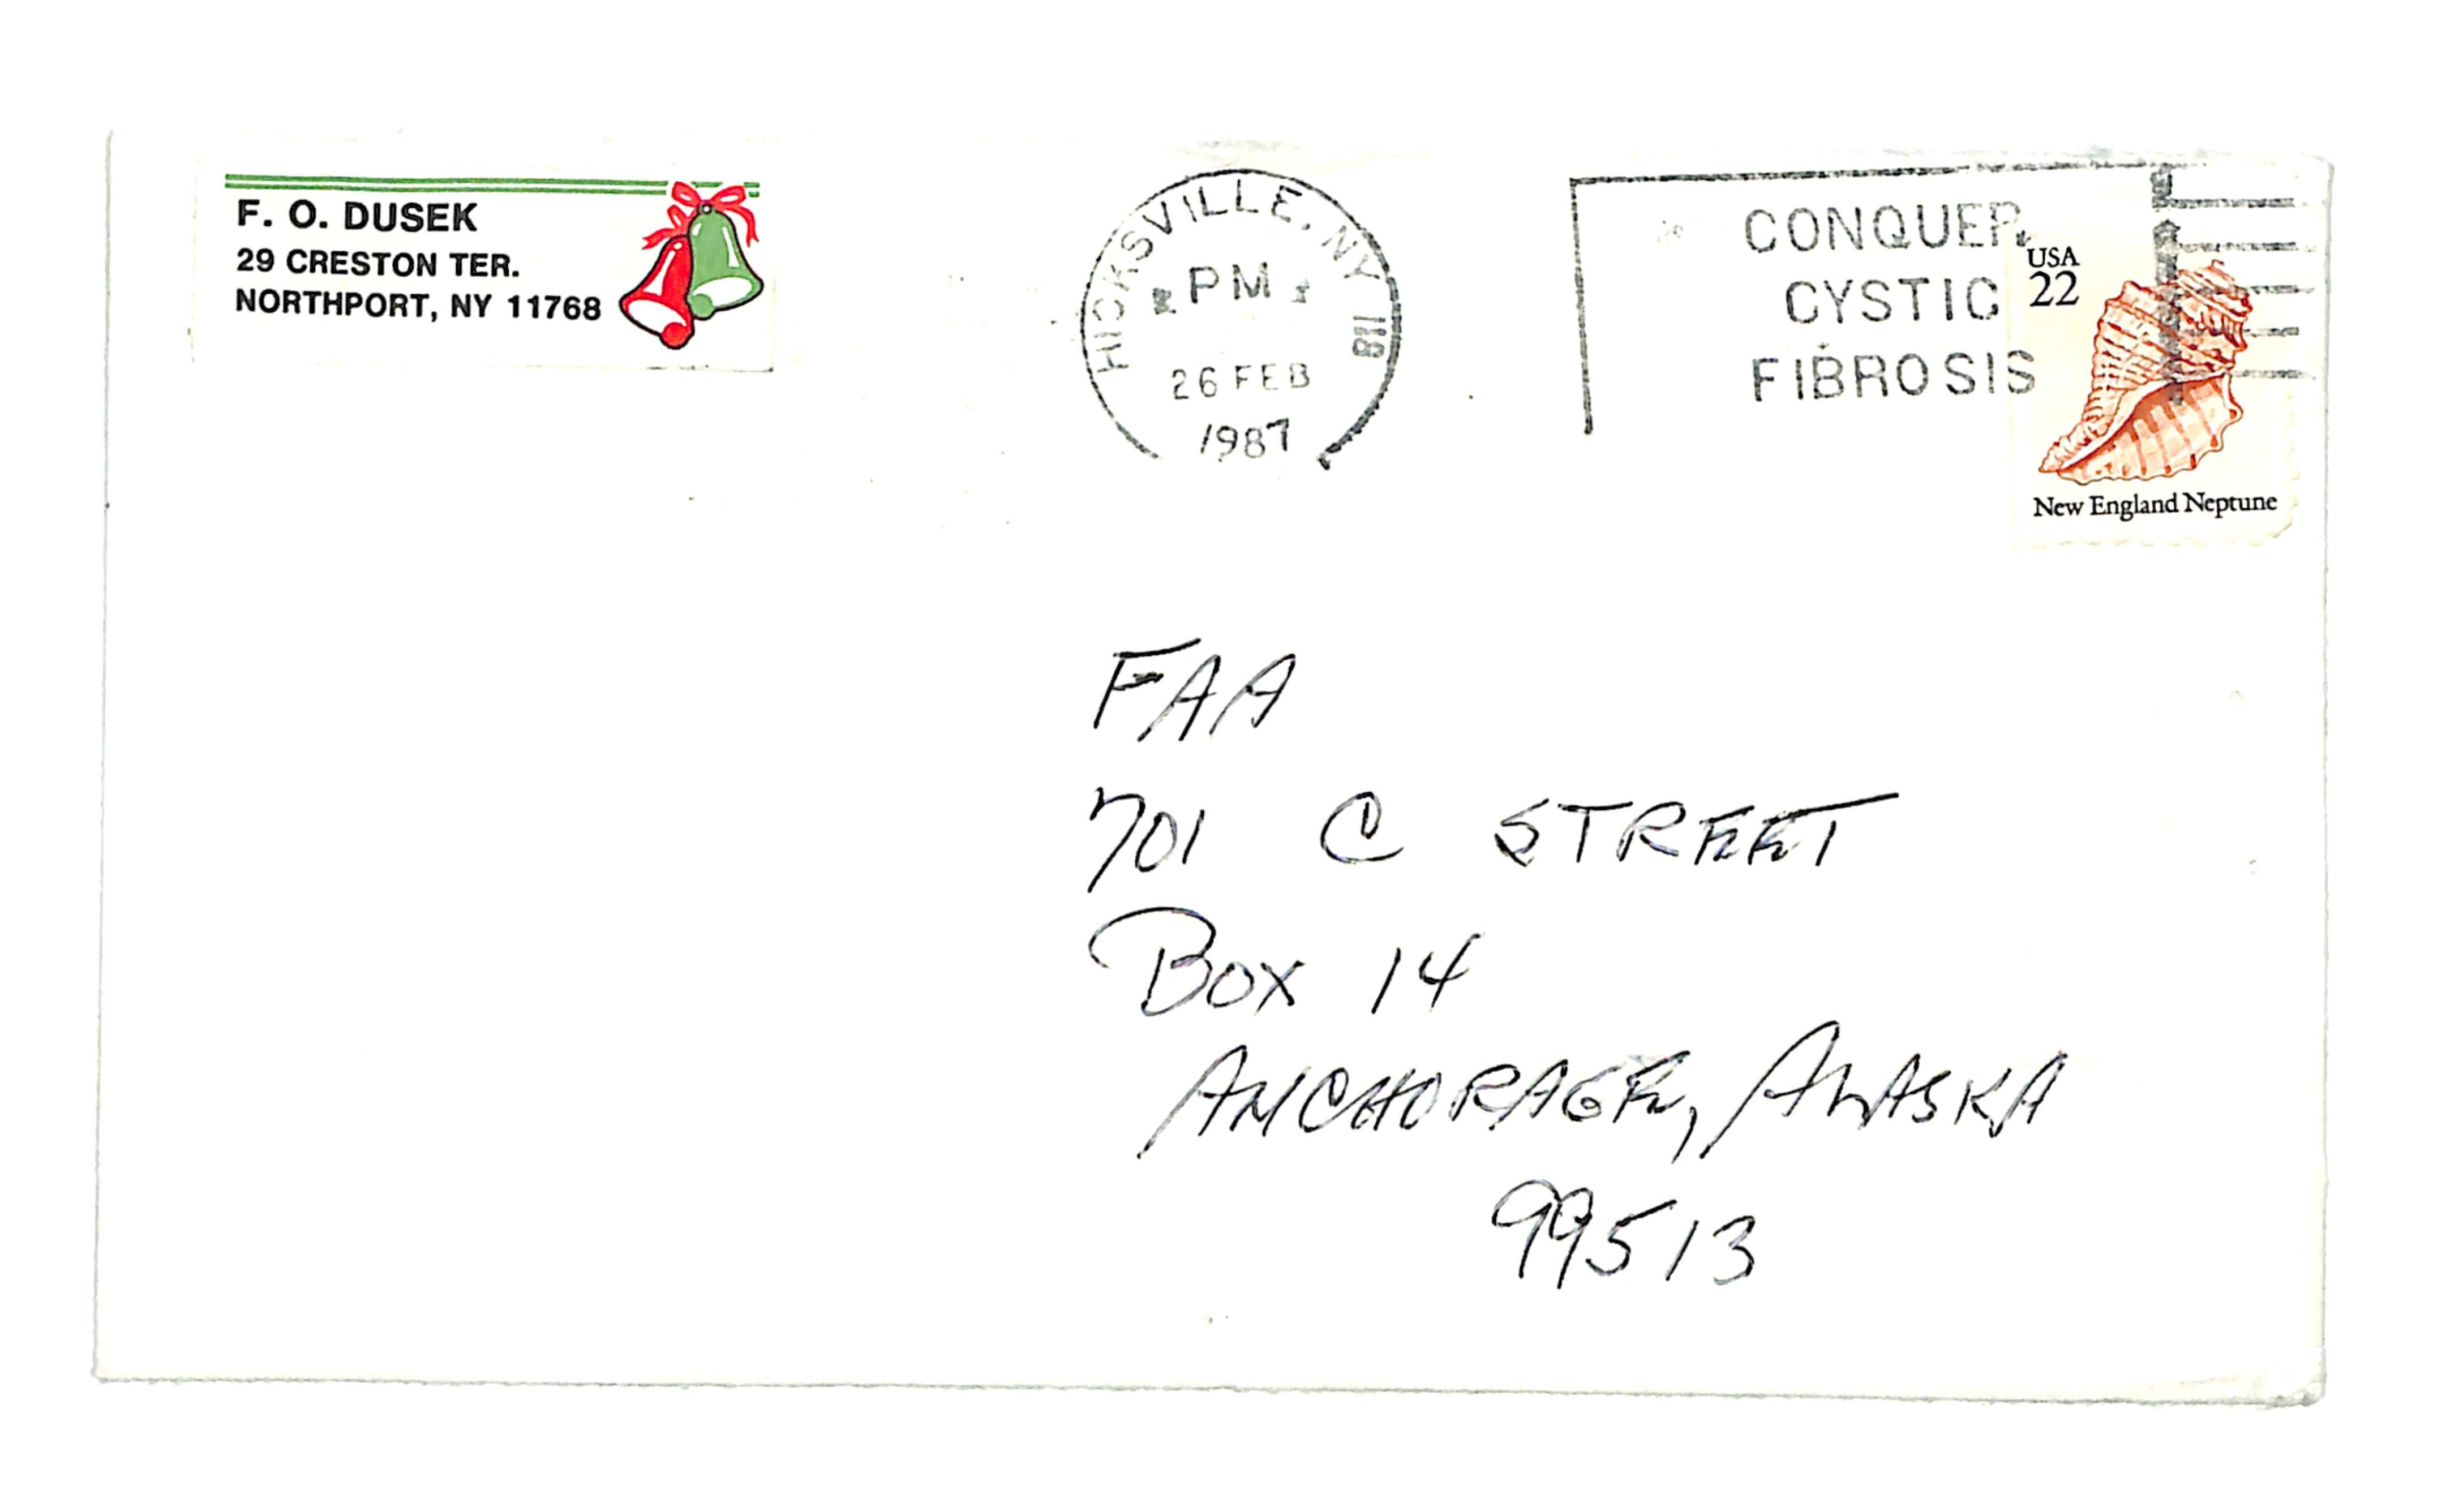 F. O. DUSEK
29 CRESTON TER.
NORTHPORT, NY 11768
HICKSVILLE, NY 118
PM
26 FEB
1987
CONQUER
CYSTIC
FIBROSIS
USA
22
New England Neptune
FAA
701 C STREET
BOX 14
ANCHORAGE, ALASKA
99513